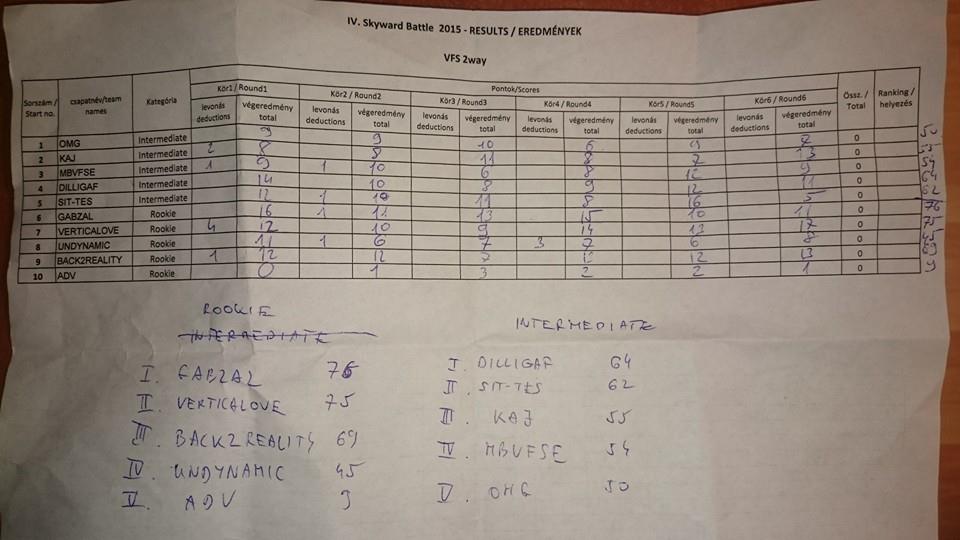 IV. Skyward Battle 2015 - RESULTS / EREDMÉNYEK
VFS 2way
Sorszám / Start no. csapatnév/team names Kategória Pontok/Scores Össz. / Total Ranking / helyezés
Kör1 / Round1 Kör2 / Round2 Kör3 / Round3 Kör4 / Round4 Kör5 / Round5 Kör6 / Round6
levonás deductions végeredmény total levonás deductions végeredmény total levonás deductions végeredmény total levonás deductions végeredmény total levonás deductions végeredmény total levonás deductions végeredmény total
1 OMG Intermediate 9 9 10 6 9 7 0 50
2 KAJ Intermediate 2 8 8 11 8 7 13 0 55
3 MBVFSE Intermediate 1 9 1 10 6 8 12 9 0 54
4 DILLIGAF Intermediate 14 10 8 9 12 11 0 64
5 SIT-TES Intermediate 12 1 10 11 8 16 5 0 62
6 GABZAL Rookie 16 1 11 13 15 10 11 0 76
7 VERTICALOVE Rookie 4 12 10 9 14 13 17 0 75
8 UNDYNAMIC Rookie 11 1 6 7 3 7 6 8 0 45
9 BACK2REALITY Rookie 1 12 12 12 13 0 69
10 ADV Rookie 0 1 3 2 2 1 0 9
ROOKIE
INTERMEDIATE
I. GABZAL 76
II. VERTICALOVE 75
III. BACK2REALITY 69
IV. UNDYNAMIC 45
V. ADV 9
INTERMEDIATE
I. DILLIGAF 64
II. SIT-TES 62
III. KAJ 55
IV. MBVFSE 54
V. OMG 50